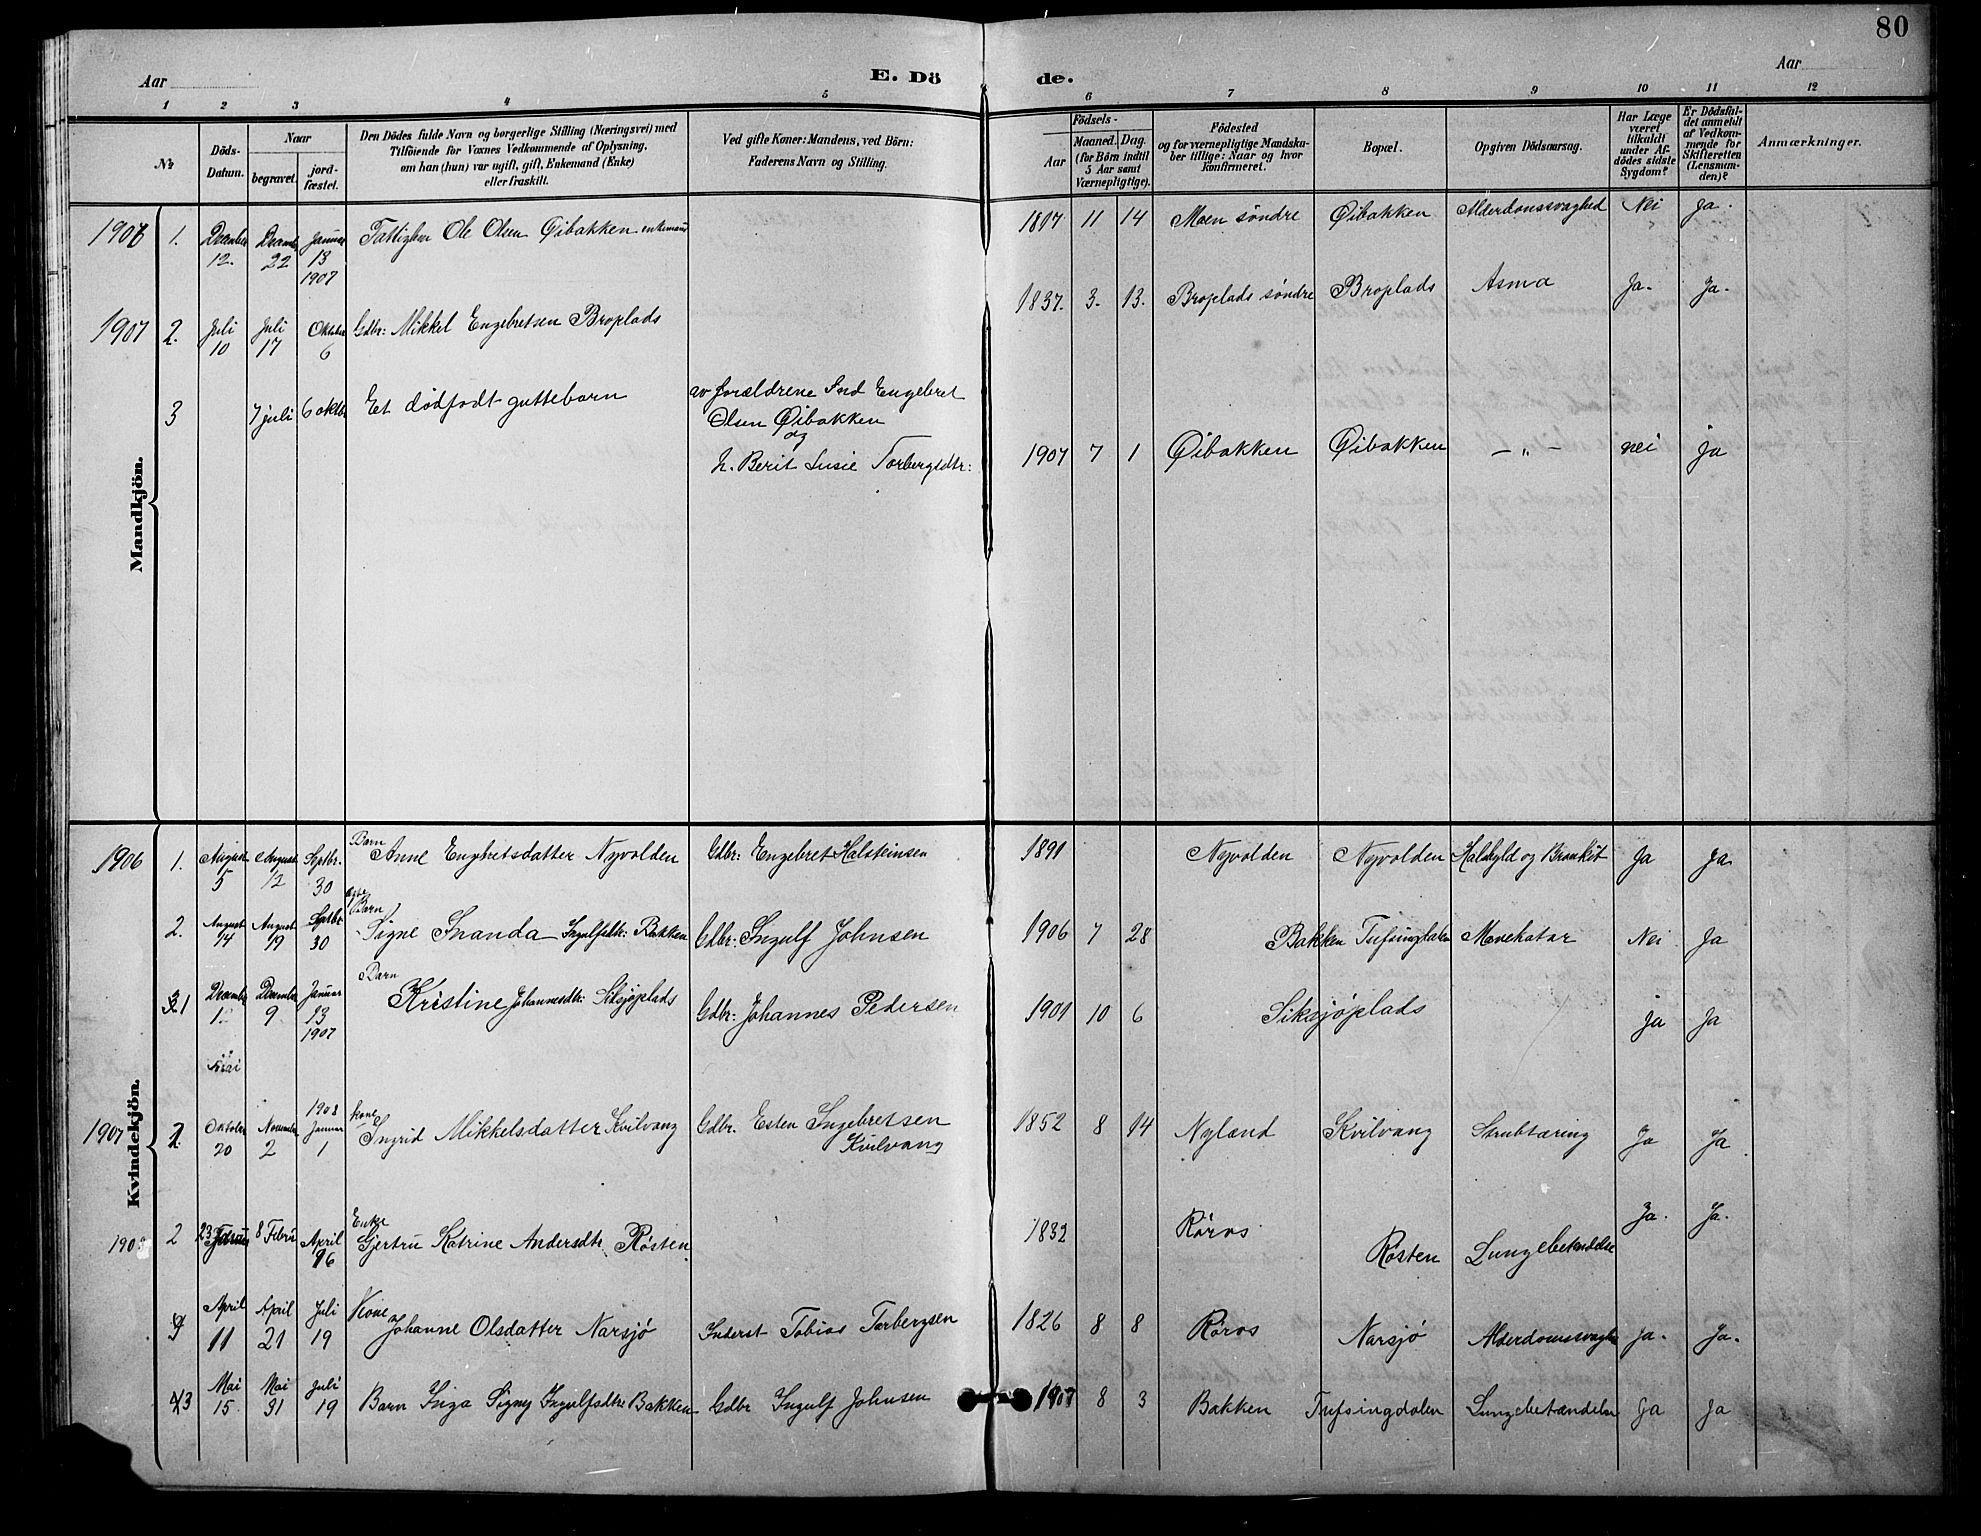 80
Aar
E. Dö
de.
Aar
1 2 3 4 5 6 7 8 9 10 11 12
No
Döds-
Datum.
Naar
begravet.
jord-
fæstet.
Den Dödes fulde Navn og borgerlige Stilling (Næringsvei) med
Tilföiende for Voxnes Vedkommende af Oplysning,
om han (hun) var ugift, gift, Enkemand (Enke)
eller fraskilt.
Ved gifte Koner: Mandens, ved Börn:
Faderens Navn og Stilling.
Födsels-
Aar
Maaned.
Dag.
(for Börn indtil
5 Aar samt
Værnepligtige).
Födested
og for værnepligtige Mandska-
ber tillige: Naar og hvor
konfirmeret.
Bopæl.
Opgiven Dödsaarsag.
Har Læge
været
tilkaldt
under Af-
dödes sidste
Sygdom?
Er Dödsfal-
det anmeldt
af Vedkom-
mende for
Skifteretten
(Lensman-
den)?
Anmærkninger.
Mandkjön.
1. December 12. Decembr 22 Januar 13 1907 Ole Olsen Øibakken enkemand 11 14 Moen söndre Øibakken Alderdomssvaghed Nei Ja.
1907 2. Juli 10 Juli 17 Oktober 6 Gdbr: Mikkel Engebretsen Broplads 1837. 3. 13. Broplads söndre Broplads Asma Ja. Ja.
3 7 juli 6 oktbr Et dödfødt guttebarn av forældrene Engebret
Olsen Øibakken
og
h. Berit Susie Torbergsdtr: 1907 7 1 Øibakken Øibakken – „ – nei ja
Kvindekjön.
1906 1. August 5 August 12 Septbr. 30 Barn Anne Engbretsdatter Nyvolden Gdbr: Engebret Halsteinsen 1891 Nyvolden Nyvolden Halsbyld og Bronkit Ja Ja.
2. August 14 August 19 Septbr 30 Barn Signe Inanda Ingulfsdtr: Bakken Gdbr: Ingulf Johnsen 1906 7 28 Bakken Tufsingdalen Mavekatar Nei Ja
1 December 1. December 9 Januar 13 1907 Barn Kristine Johannesdtr: Siksjøplads Gdbr: Johannes Pedersen 1901 10 6 Siksjøplads ja Ja
Mai
1907 2. Oktober 20 November 2 1908 Januar 1 Kone Ingrid Mikkelsdatter Kvilvang Gdbr. Esten Ingebretsen
Kvilvang 1852 8 14 Nyland Kvilvang Strubtæring Ja Ja
1908 2 23 8 Febru April 16 Enke Gjertru Katrine Andersdtr. Røsten 1832 Røros Røsten Lungebetændelse Ja. Ja.
April 11 April 21 Juli 19 Kone Johanne Olsdatter Narsjö Inderst Tobias Torbergsen 1826 8 8 Röros Narsjö Alderdomssvaghed Ja. Ja.
3 Mai 15. Mai 31 Juli 19 Barn Inga Signy Ingulfsdtr Bakken Gdbr Ingulf Johnsen 1907 8 3 Bakken Tufsingdalen Lungebetændelse Ja Ja